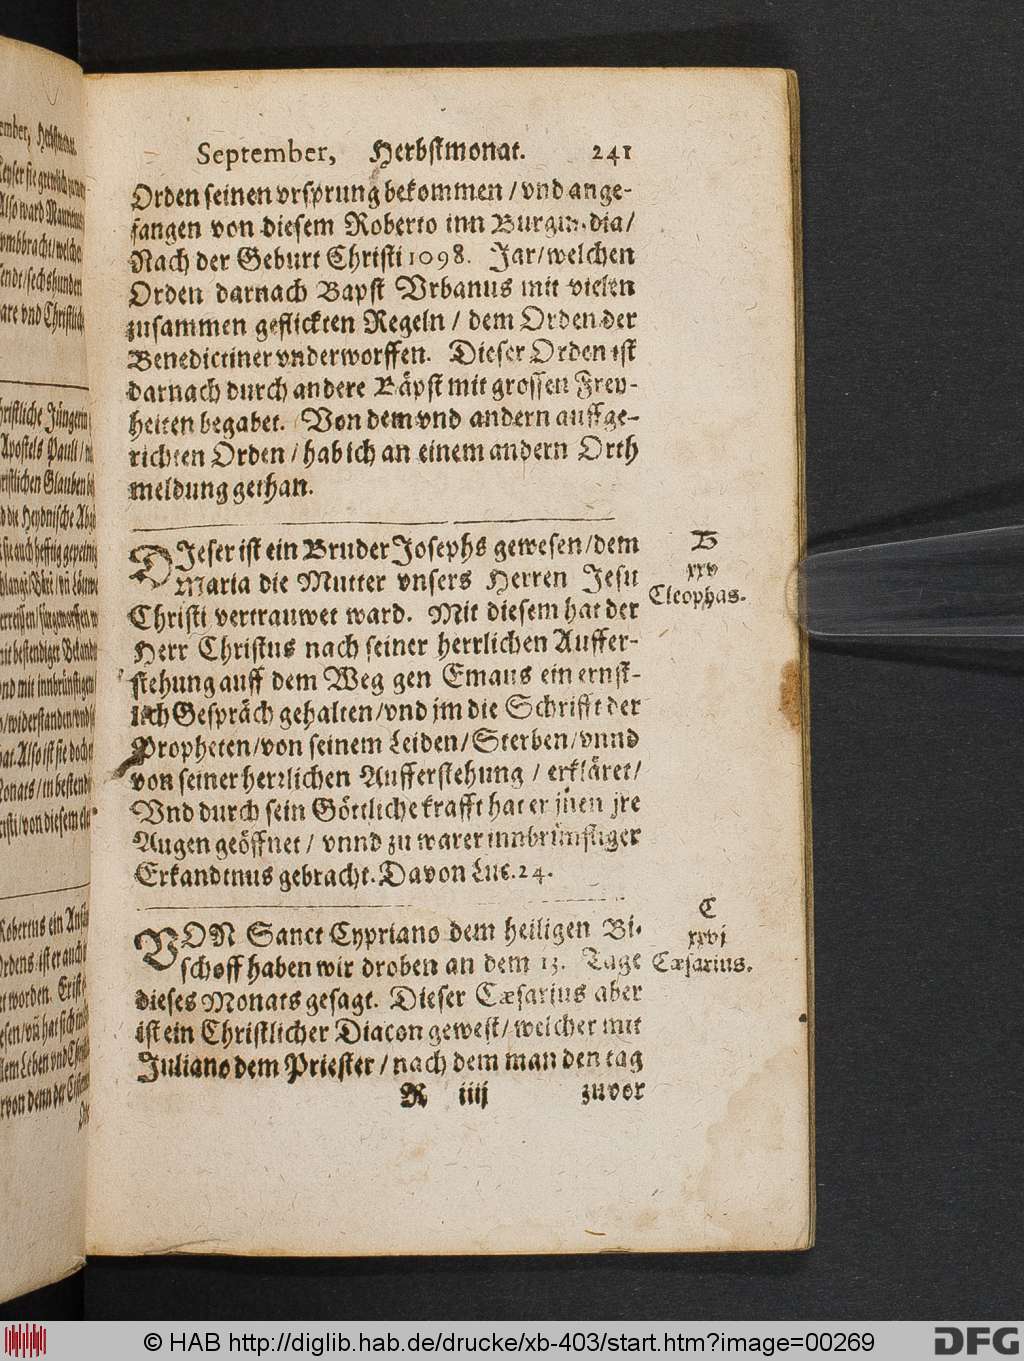 September, Herbstmonat. 241
Orden seinen vrsprung bekommen / vnd ange-
fangen von diesem Roberto inn Burgundia /
Nach der Geburt Christi 1098. Jar / welchen
Orden darnach Bapst Vrbanus mit vielen
zusammen geflickten Regeln / dem Orden der
Benedictiner vnderworffen. Dieser Orden ist
darnach durch andere Bäpst mit grossen Frey-
heiten begabet. Von dem vnd andern auffge-
richten Orden / hab ich an einem andern Orth
meldung gethan.
DIeser ist ein Bruder Josephs gewesen / dem
Maria die Mutter vnsers Herren Jesu
Christi vertrauwet ward. Mit diesem hat der
Herr Christus nach seiner herrlichen Auffer-
stehung auff dem Weg gen Emaus ein ernst-
lich Gespräch gehalten / vnd jm die Schrifft der
Propheten / von seinem Leiden / Sterben / vnnd
von seiner herrlichen Aufferstehung / erkläret /
Vnd durch sein Göttliche krafft hat er jnen jre
Augen geöffnet / vnnd zu warer innbrünstiger
Erkandtnus gebracht. Davon Luc. 24.
B
xxv
Cleophas.
VON Sanct Cypriano dem heiligen Bi-
schoff haben wir droben an dem 13. Tage
dieses Monats gesagt. Dieser Cæsarius aber
ist ein Christlicher Diacon gewest / welcher mit
Juliano dem Priester / nach dem man den tag
R iiij zuvor
C
xxvj
Cæsarius.
© HAB http://diglib.hab.de/drucke/xb-403/start.htm?image=00269
DFG